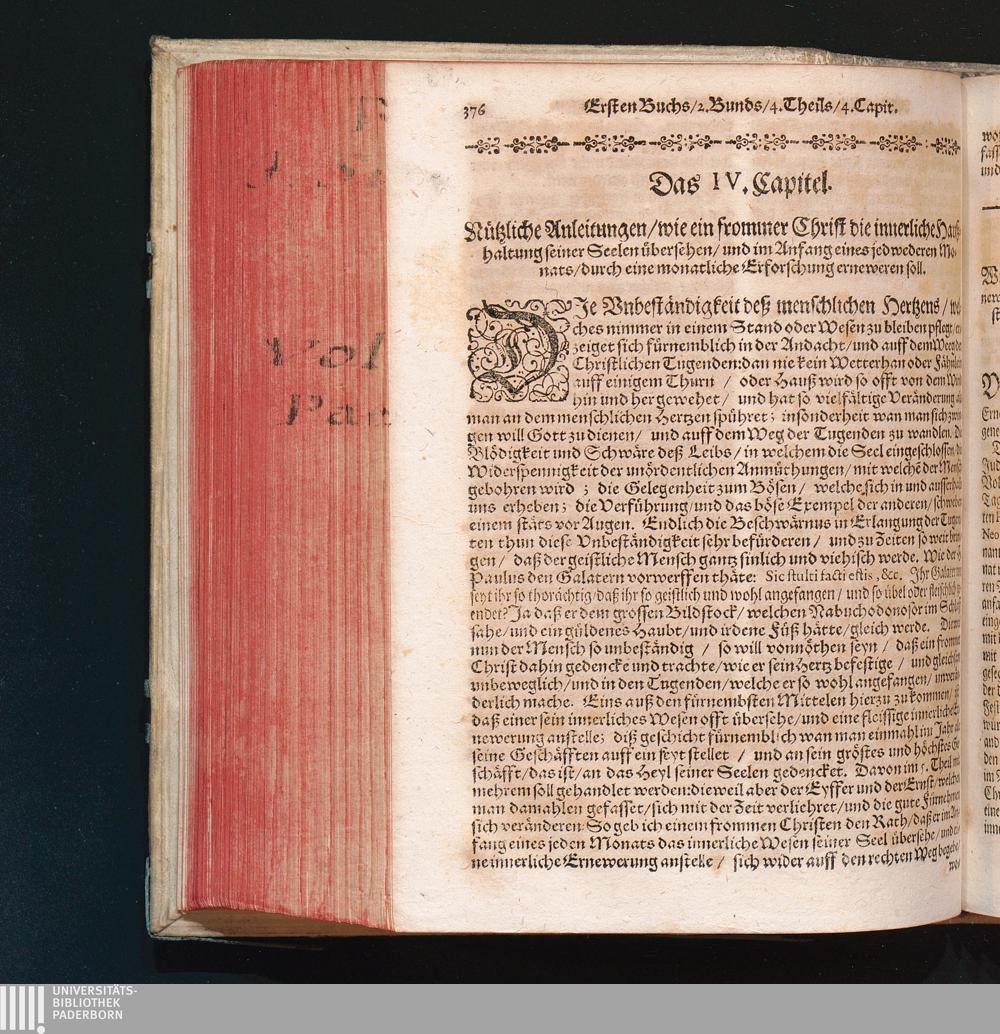 376
Ersten Buchs/2. Bunds/4. Theils/4. Capit.
Das IV. Capitel.
Nützliche Anleitungen/wie ein frommer Christ die innerliche Hauß-
haltung seiner Seelen übersehen/und im Anfang eines jedwederen Mo-
nats/durch eine monatliche Erforschung erneweren soll.
DIe Vnbeständigkeit deß menschlichen Hertzens/
ches nimmer in einem Stand oder Wesen zu bleiben pflegt/
zeiget sich fürnemblich in der Andacht/und auff dem Weeg der
Christlichen Tugenden:dan nie kein Wetterhan oder Fähnlen
auff einigem Thurn / oder Hauß wird so offt von dem
hin und her gewehet/ und hat so vielfältige Veränderung
man an dem menschlichen Hertzen spühret; insonderheit wan man sich
gen will Gott zu dienen/ und auff dem Weg der Tugenden zu wandlen.
Blödigkeit und Schwäre deß Leibs/in welchem die Seel eingeschlossen/
Widerspennigkeit der unördentlichen Anmüthungen/mit welchē der Mensch
gebohren wird; die Gelegenheit zum Bösen/ welche sich in und
uns erheben; die Verführung/und das böse Exempel der anderen/
einem stäts vor Augen. Endlich die Beschwärnus in Erlangung der
ten thun diese Vnbeständigkeit sehr befürderen/ und zu Zeiten so weit
gen/ daß der geistliche Mensch gantz sinlich und viehisch werde. Wie der
Paulus den Galatern vorwerffen thäte: Sic stulti facti estis, &c. Ihr
seyt ihr so thorächtig/daß ihr so geistlich und wohl angefangen/und so übel oder fleischlich
endet? Ja daß er dem grossen Bildstock/welchen Nabuchodonosor im
sahe/und ein güldenes Haubt/und irdene Füß hätte/gleich werde.
nun der Mensch so unbeständig / so will vonnöthen seyn/ daß ein
Christ dahin gedencke und trachte/wie er sein Hertz befestige / und
unbeweglich/und in den Tugenden/welche er so wohl angefangen/
derlich mache. Eins auß den fürnembsten Mittelen hierzu zu kommen/
daß einer sein innerliches Wesen offt übersehe/und eine fleissige innerliche
newerung anstelle; diß geschicht fürnemblich wan man einmahl im Jahr
seine Geschäfften auff ein seyt stellet / und an sein gröstes und höchstes
schäfft/das ist/an das Heyl seiner Seelen gedencket. Davon im 5. Theil
mehrem soll gehandlet werden:dieweil aber der Eyffer und der Ernst/welchen
man damahlen gefasset/sich mit der Zeit verliehret/und die gute Fürnehmen
sich veränderen: So geb ich einem frommen Christen den Rath/daß er im An-
fang eines jeden Monats das innerliche Wesen seiner Seel übersehe/und
ne innerliche Ernewerung anstelle / sich wider auff den rechten Weg begebe/
UNIVERSITÄTS-
BIBLIOTHEK
PADERBORN